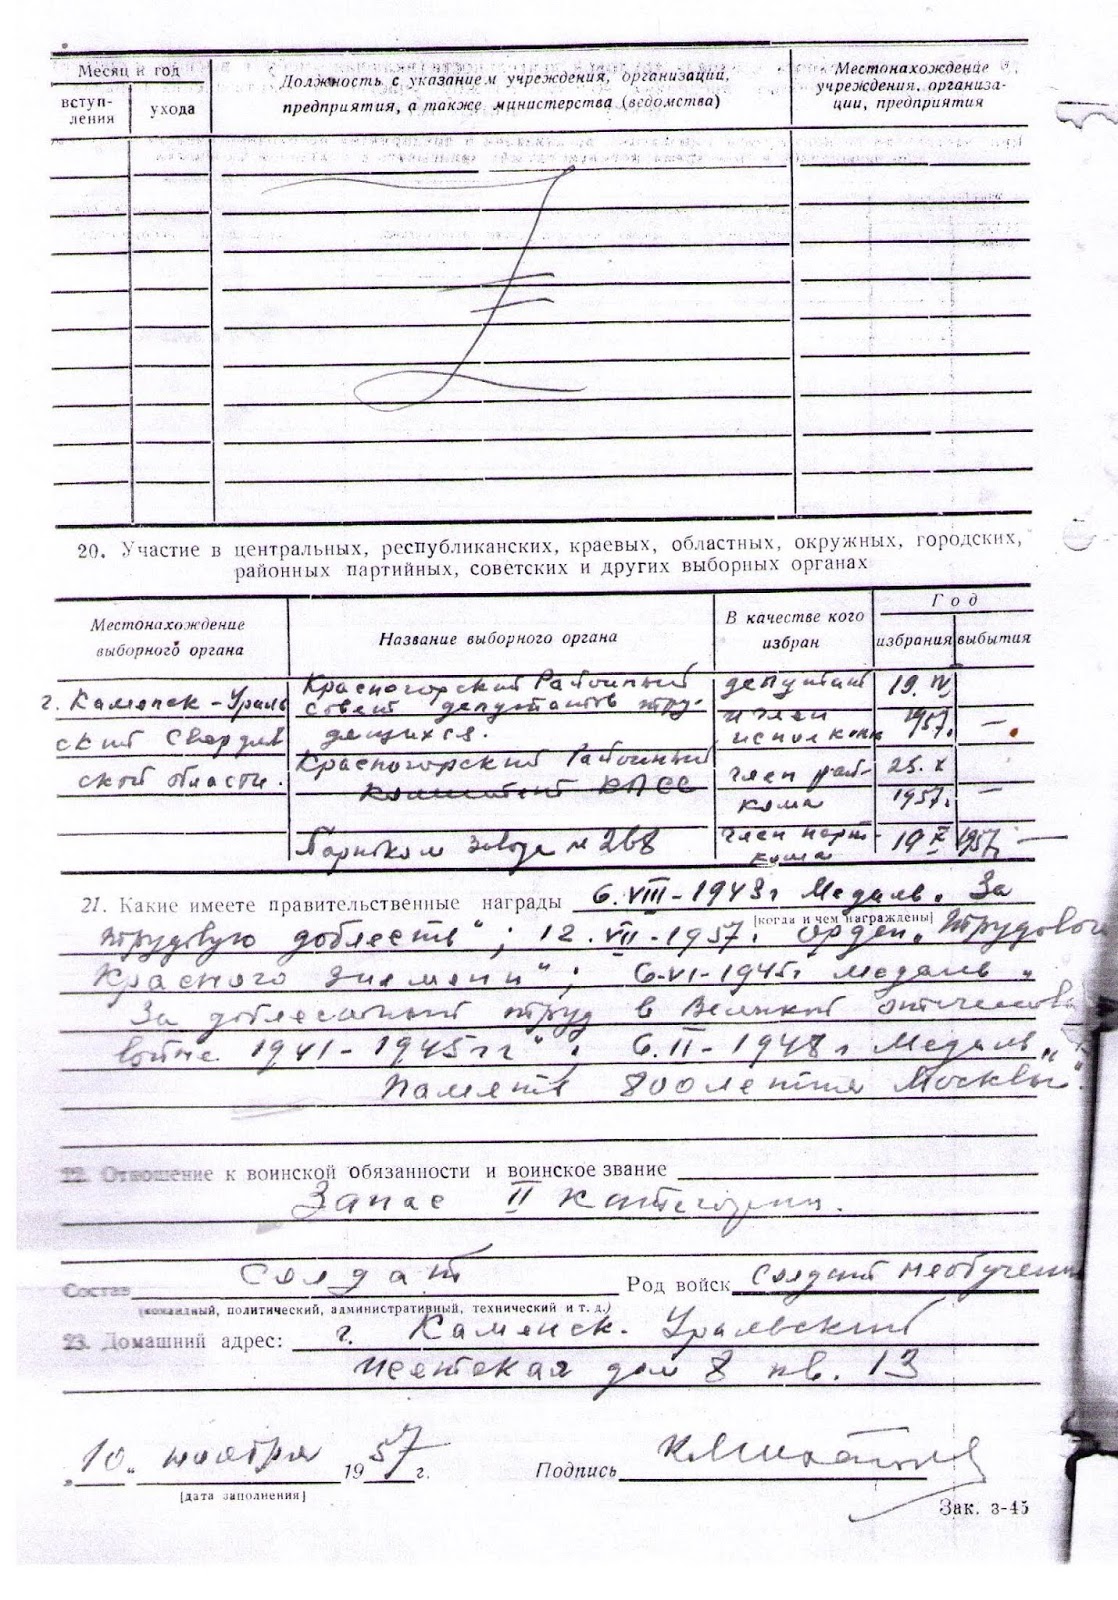 Месяц и год
вступ-
ления
ухода
Должность с указанием учреждения, организации,
предприятия, а также министерства (ведомства)
Местонахождение
учреждения, организа-
ции, предприятия
20. Участие в центральных, республиканских, краевых, областных, окружных, городских,
районных партийных, советских и других выборных органах
Местонахождение
выборного органа
Название выборного органа
В качестве кого
избран
Год
избрания
выбытия
г. Каменск-Ураль
ский Свердлов
ской области.
Красногорский Районный
совет депутатов тру-
дящихся.
депутат
и член
исполкома
19. IV
1957г.
—
Красногорский Районный
комитет КПСС
член рай-
кома
25. X
1957г.
—
Партком завода № 268
член парт-
кома
19 X 1957г. —
21. Какие имеете правительственные награды 6.VIII-1943г Медаль „За
[когда и чем награждены]
трудовую доблесть"; 12.VII-1957г. орден „Трудового
Красного знамени"; 6-VI-1945г медаль „
За доблестный труд в Великой отечествен
войне 1941-1945гг"; 6.II-1948г Медаль „
Память 800летия Москвы".
22. Отношение к воинской обязанности и воинское звание
Запас II категории.
Состав солдат Род войск солдат необучен
(командный, политический, административный, технический и т. д.)
23. Домашний адрес: г. Каменск-Уральский
Исетская дом 8 кв. 13
„10" ноября 1957г.
[дата заполнения]
Подпись
Зак. з-45